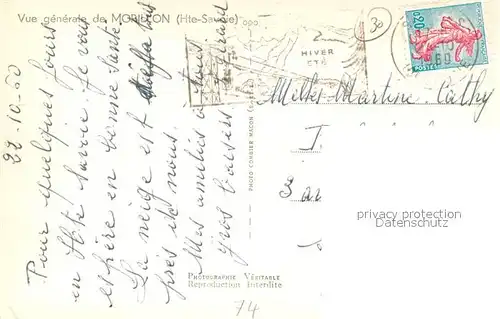 Vue générale de MORILLON (Hte-Savoie)
HIVER
ETE
30
0,20
22.10.60
Pour quelques jours
en Hte Savoie. Je vous
espère en bonne santé
La neige est
près de nous.
Mes amitiés à tous
gros baisers
Melles Martine. Cathy
PHOTO COMBIER MACON
privacy protection
PHOTOGRAPHIE VÉRITABLE
Reproduction Interdite
74